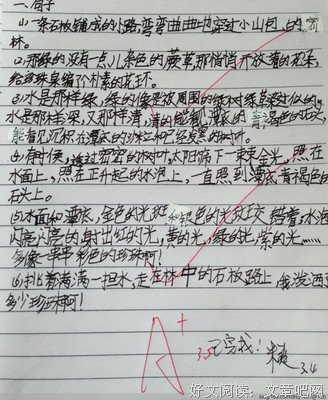 一、句子
(1)一条石板铺成的小路,弯弯曲曲地穿过小山包 的密
林。
(2)那绿的没有一点儿杂色的蕨草,那悄悄开放着的花朵,
给珍珠泉编了朴素的花环。
(3)水是那样绿,绿的像是被周围的绿树绿草染过似的。
水是那样深,又那样清,清的能 潭底的青褐色的石头,
能看见沉积在潭底的沙粒和已经发黑的树叶。
(4)有时候,透过密密的树叶,太阳筛下一束束金光,照在
水面上,照在正升起的水泡上,一直照到潭底青褐色的
石头上。
(5)水面和潭底,金色的光斑和银色的光斑交错着;水泡
闪亮闪亮的,射出红的光,黄的光,绿的光,紫的光……
多像一串串彩色的珍珠啊!
(6)挑着满满一担水,走在林中的石板路上,我泼洒了
多少珍珠啊!
A+
3.5
3.4
好文阅读:文章吧网